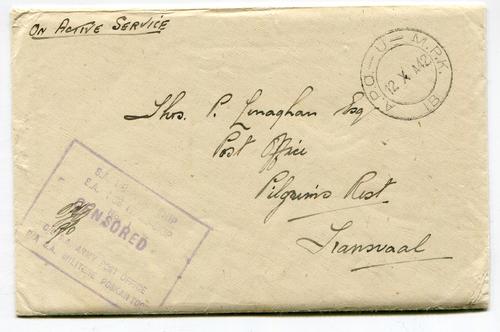 On Active Service
A.P.O. – U – M.P.K.
12 X 42
1B
Thos. P. Lenaghan Esq
Post Office
Pilgrims Rest
Transvaal
CENSORED
ARMY POST OFFICE
S.A. MILITÊRE POSKANTOOR